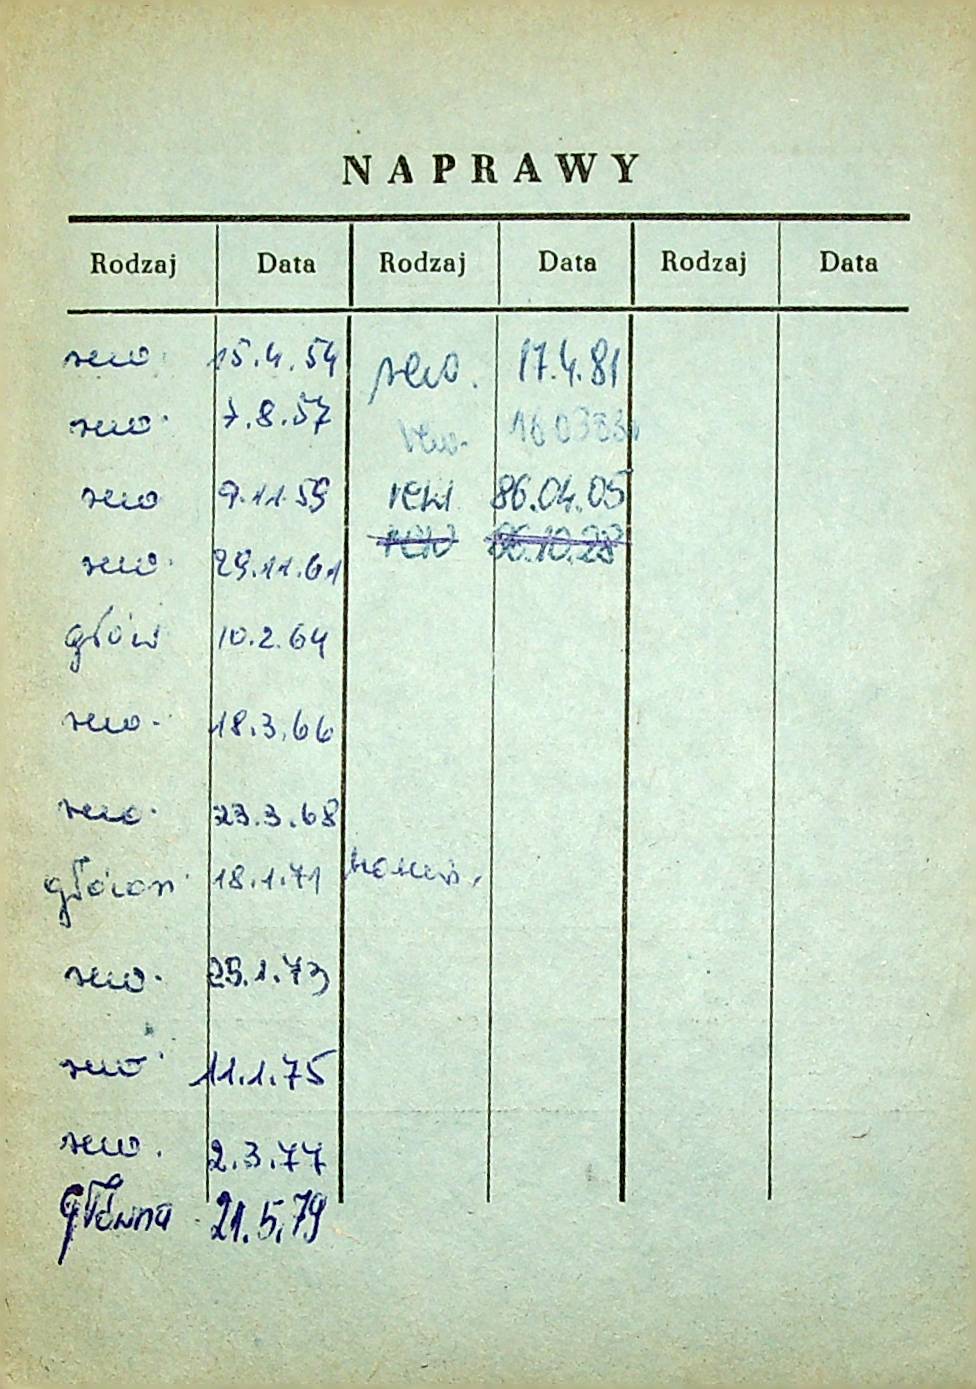 NAPRAWY
Rodzaj Data Rodzaj Data Rodzaj Data
rew. 15.4.54 rew. 17.4.81
rew. 7.8.57 rew.
rew 9.11.59 rew 86.04.05
rew. 29.11.61 rew 86.10.28
głów 10.2.64
rew. 18.3.66
rew. 23.3.68
główn. 18.1.71
rew. 25.1.73
rew. 11.1.75
rew. 2.3.77
główna 21.5.79